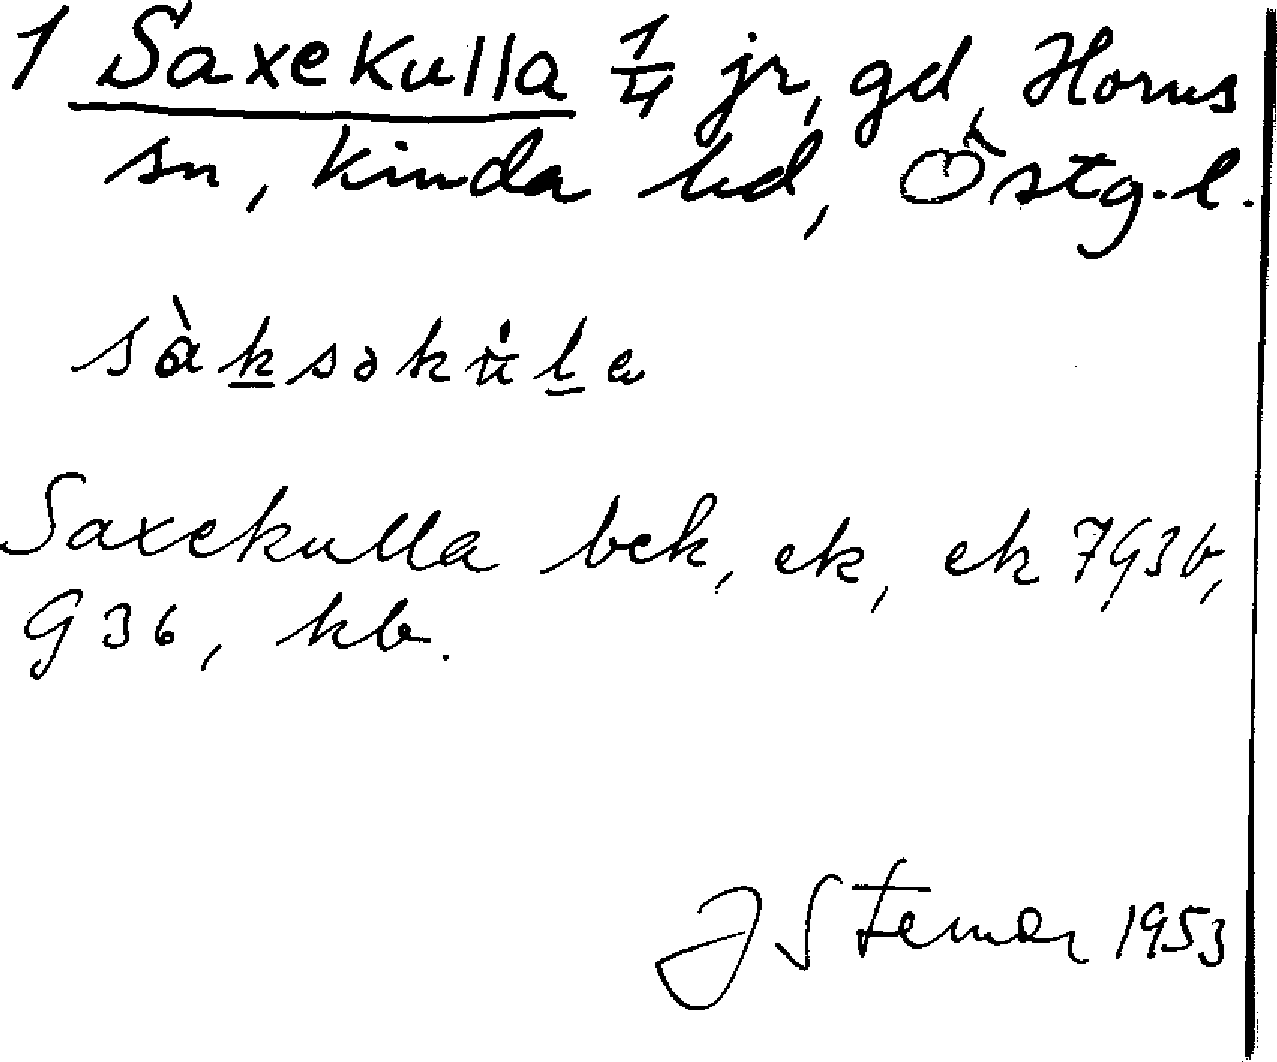 1 Saxekulla 1/4 jr, gd, Horns
sn, Kinda hd, Östg.l.
sàksəkùla
Saxekulla bek, ek, ek 7G3b,
G36, kb.
J Stemar 1953